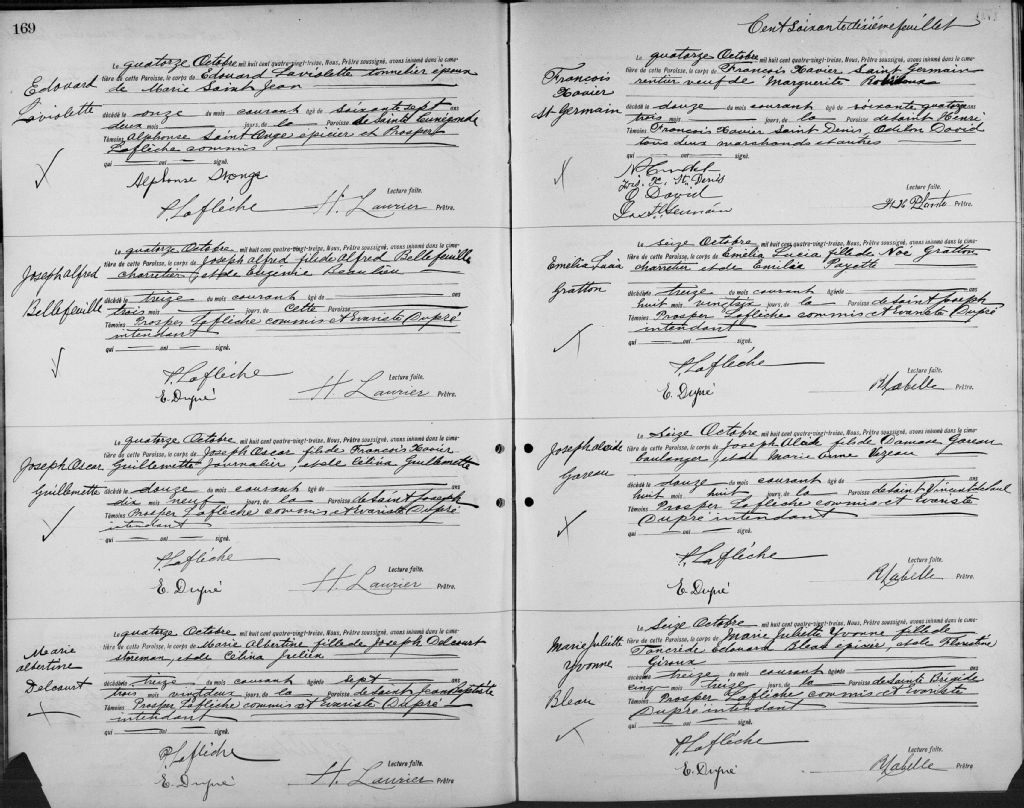 169
Edouard
Laviolette
Le quatorze Octobre mil huit cent quatre-vingt-treize, Nous, Prêtre soussigné, avons inhumé dans le cime-
tière de cette Paroisse, le corps de Edouard Laviolette tonnelier époux
de Marie Saint Jean
décédé le onze du mois courant âgé de soixante sept ans
deux mois jours, de la Paroisse de Sainte Cunégonde
Témoins Alphonse Saint Onge épicier et Prosper
Laflèche commis
qui — ont — signé.
Alphonse St Onge
P. Laflèche
Lecture faite.
H. Laurier Prêtre.
Joseph Alfred
Bellefeuille
Le quatorze Octobre mil huit cent quatre-vingt-treize, Nous, Prêtre soussigné, avons inhumé dans le cime-
tière de cette Paroisse, le corps de Joseph Alfred fils de Alfred Bellefeuille
charretier, et de Eugénie Beaulieu
décédé le treize du mois courant âgé de ans
trois mois jours, de Cette Paroisse
Témoins Prosper Laflèche commis et Evariste Dupré
intendant
qui — ont — signé.
P. Laflèche
E. Dupré
Lecture faite.
H. Laurier Prêtre.
Joseph Oscar
Guillemette
Le quatorze Octobre mil huit cent quatre-vingt-treize, Nous, Prêtre soussigné, avons inhumé dans le cime-
tière de cette Paroisse, le corps de Joseph Oscar fils de François Xavier
Guillemette journalier, et de Célina Guillemette
décédé le douze du mois courant âgé de ans
dix mois neuf jours, de la Paroisse de Saint Joseph
Témoins Prosper Laflèche commis et Evariste Dupré
intendant
qui — ont — signé.
P. Laflèche
E. Dupré
Lecture faite.
H. Laurier Prêtre.
Marie
Albertine
Delcourt
Le quatorze Octobre mil huit cent quatre-vingt-treize, Nous, Prêtre soussigné, avons inhumé dans le cime-
tière de cette Paroisse, le corps de Marie Albertine fille de Joseph Delcourt
storeman, et de Célina Julien
décédé le treize du mois courant âgé de sept ans
trois mois vingt deux jours, de la Paroisse de Saint Jean Baptiste
Témoins Prosper Laflèche commis et Evariste Dupré
intendant
qui — ont — signé.
P. Laflèche
E. Dupré
Lecture faite.
H. Laurier Prêtre.
Cent soixante dixième feuillet
François
Xavier
St. Germain
Le quatorze Octobre mil huit cent quatre-vingt-treize, Nous, Prêtre soussigné, avons inhumé dans le cime-
tière de cette Paroisse, le corps de François Xavier Saint Germain
rentier veuf de Marguerite
décédé le douze du mois courant âgé de soixante quatorze ans
trois mois jours, de la Paroisse de Saint Henri
Témoins François Xavier Saint Denis, Odilon David
tous deux marchands et autres
qui — ont — signé.
Frs. X. St. Denis
O David
Lecture faite.
Prêtre.
Emélia Lucia
Gratton
Le seize Octobre mil huit cent quatre-vingt-treize, Nous, Prêtre soussigné, avons inhumé dans le cime-
tière de cette Paroisse, le corps de Emélia Lucia fille de Noé Gratton
charretier et de Emilia Payette
décédé le treize du mois courant âgé de ans
huit mois vingt six jours, de la Paroisse de Saint Joseph
Témoins Prosper Laflèche commis et Evariste Dupré
intendant
qui — ont — signé.
P. Laflèche
E. Dupré
Lecture faite.
R Labelle Prêtre.
Joseph Alcide
Gareau
Le Seize Octobre mil huit cent quatre-vingt-treize, Nous, Prêtre soussigné, avons inhumé dans le cime-
tière de cette Paroisse, le corps de Joseph Alcide fils de Damase Gareau
boulanger, et de Marie Anne Vézeau
décédé le douze du mois courant âgé de ans
huit mois huit jours, de la Paroisse de Saint Vincent de Paul
Témoins Prosper Laflèche commis et Evariste
Dupré intendant
qui — ont — signé.
P. Laflèche
E. Dupré
Lecture faite.
R Labelle Prêtre.
Marie Juliette
Yvonne
Bleau
Le Seize Octobre mil huit cent quatre-vingt-treize, Nous, Prêtre soussigné, avons inhumé dans le cime-
tière de cette Paroisse, le corps de Marie Juliette Yvonne fille de
Tancrède Edouard Bleau épicier, et de Florestine
Giroux
décédé le treize du mois courant âgé de ans
cinq mois treize jours, de la Paroisse de Sainte Brigide
Témoins Prosper Laflèche commis et Evariste
Dupré intendant
qui — ont — signé.
P. Laflèche
E. Dupré
Lecture faite.
R Labelle Prêtre.